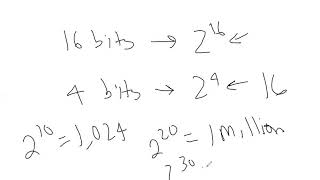 16 bits → 2^16 ←
4 bits → 2^4 ← 16
2^10 = 1,024 2^20 = 1 Million
2^30